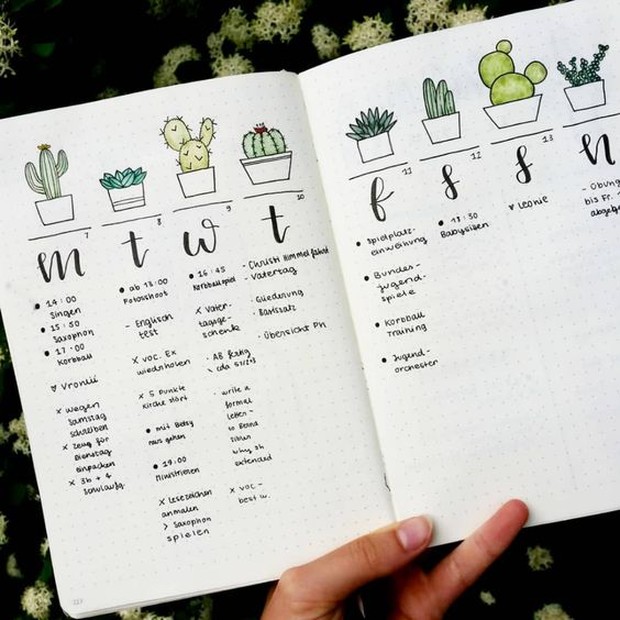 7
m
• 14:00
Singen
• 15:50
Saxophon
• 17:00
Korbball
Vronlii
x wegen
Samstag
schreiben
x zeug für
Dienstag
einpacken
x 3b + 4
8
t
• ab 13:00
Fotoshoot
- Englisch
test
x voc. Ex
wiederholen
x 5 Punkte
Kirche stört
• mit Betsy
raus gehen
• 19:00
Ministrieren
x Lesezeichen
anmalen
> Saxophon
spielen
9
w
• 16:45
Korbballspiel
x Vater-
tagsge-
schenk
· AB fertig
· write a
formal
letter -
why oh
extended
x voc.-
test w.
10
t
- Christi Himmelfahrt
- Vatertag
· Gliederung
· Übersicht Ph
11
f
• Spielplatz-
einweihung
• Bundes-
jugend-
spiele
• Korbball
Training
• Jugend-
orchester
12
s
• 13:50
Babysitten
13
s
Leonie
n
- Übung
bis Fr.
abge